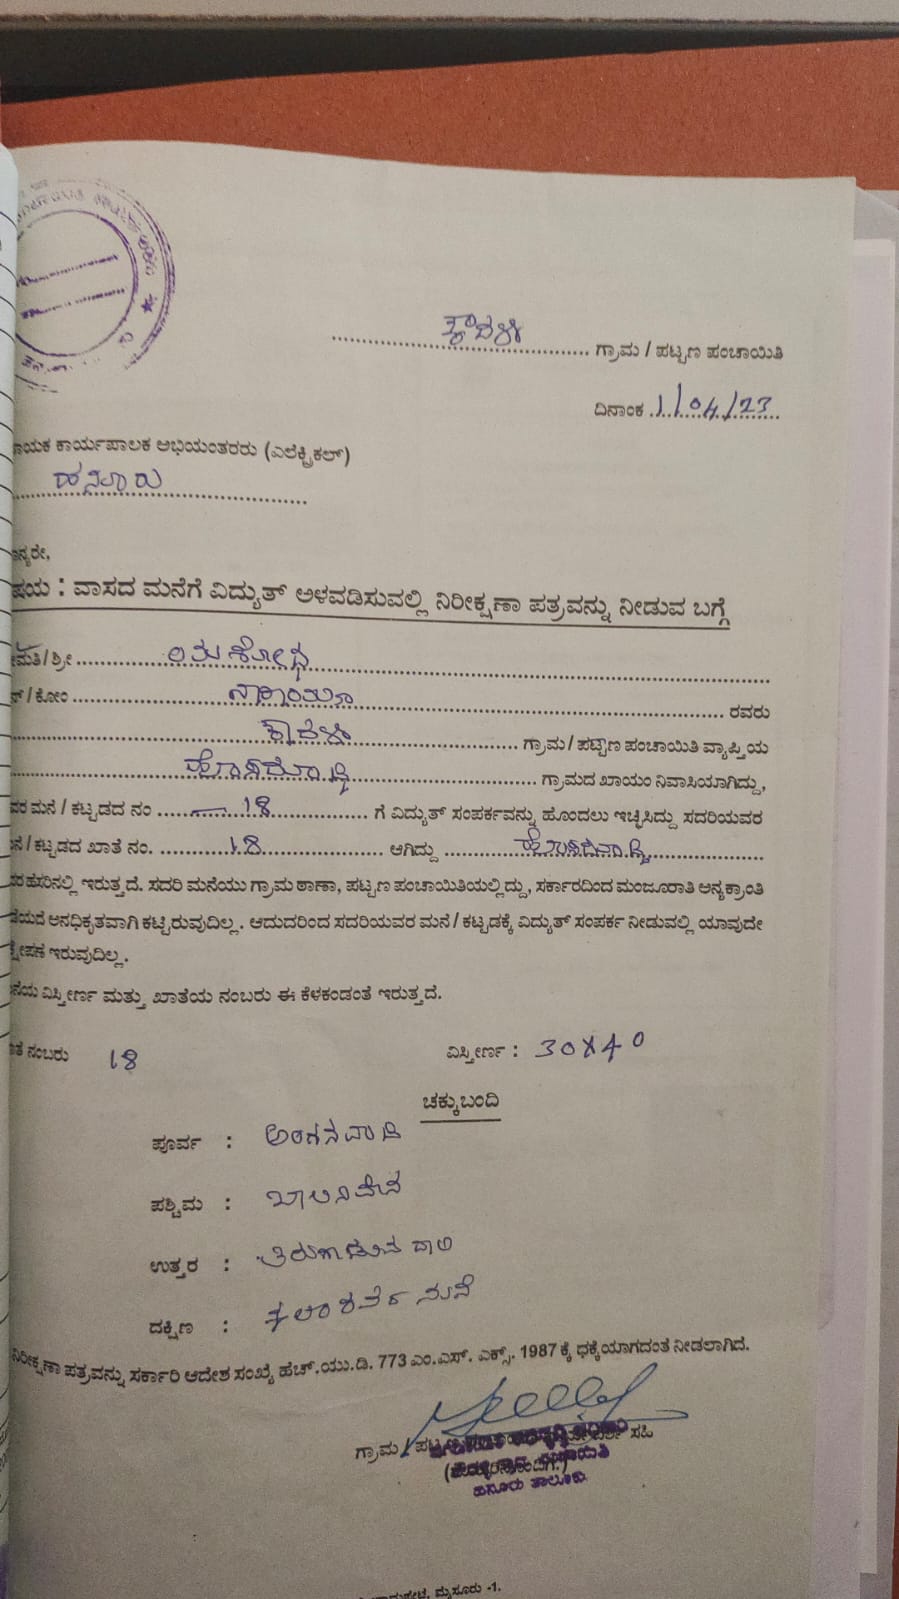 ಕೌದಳ್ಳಿ ಗ್ರಾಮ / ಪಟ್ಟಣ ಪಂಚಾಯಿತಿ
ದಿನಾಂಕ 1/04/23
ಕಾರ್ಯಪಾಲಕ ಅಭಿಯಂತರರು (ಎಲೆಕ್ಟ್ರಿಕಲ್)
ಹನೂರು
: ವಾಸದ ಮನೆಗೆ ವಿದ್ಯುತ್ ಅಳವಡಿಸುವಲ್ಲಿ ನಿರೀಕ್ಷಣಾ ಪತ್ರವನ್ನು ನೀಡುವ ಬಗ್ಗೆ
/ ಶ್ರೀ ಯಶೋಧ
/ ಕೋಂ ನಾರಾಯಣ ರವರು
ಗ್ರಾಮ / ಪಟ್ಟಣ ಪಂಚಾಯಿತಿ ವ್ಯಾಪ್ತಿಯ
ಗ್ರಾಮದ ಖಾಯಂ ನಿವಾಸಿಯಾಗಿದ್ದು,
ಮನೆ / ಕಟ್ಟಡದ ನಂ 18 ಗೆ ವಿದ್ಯುತ್ ಸಂಪರ್ಕವನ್ನು ಹೊಂದಲು ಇಚ್ಛಿಸಿದ್ದು ಸದರಿಯವರ
/ ಕಟ್ಟಡದ ಖಾತೆ ನಂ. 18 ಆಗಿದ್ದು
ಹೆಸರಿನಲ್ಲಿ ಇರುತ್ತದೆ. ಸದರಿ ಮನೆಯು ಗ್ರಾಮ ಠಾಣಾ, ಪಟ್ಟಣ ಪಂಚಾಯಿತಿಯಲ್ಲಿದ್ದು, ಸರ್ಕಾರದಿಂದ ಮಂಜೂರಾತಿ ಅನ್ಯಕ್ರಾಂತಿ
ಅನಧಿಕೃತವಾಗಿ ಕಟ್ಟಿರುವುದಿಲ್ಲ. ಆದುದರಿಂದ ಸದರಿಯವರ ಮನೆ / ಕಟ್ಟಡಕ್ಕೆ ವಿದ್ಯುತ್ ಸಂಪರ್ಕ ನೀಡುವಲ್ಲಿ ಯಾವುದೇ
ಇರುವುದಿಲ್ಲ.
ವಿಸ್ತೀರ್ಣ ಮತ್ತು ಖಾತೆಯ ನಂಬರು ಈ ಕೆಳಕಂಡಂತೆ ಇರುತ್ತದೆ.
ನಂಬರು 18 ವಿಸ್ತೀರ್ಣ : 30X40
ಚಕ್ಕುಬಂದಿ
ಪೂರ್ವ : ಅಂಗನವಾಡಿ
ಪಶ್ಚಿಮ : ಖಾಲಿನಿವೇಶನ
ಉತ್ತರ :
ದಕ್ಷಿಣ : ಮನೆ
ನಿರೀಕ್ಷಣಾ ಪತ್ರವನ್ನು ಸರ್ಕಾರಿ ಆದೇಶ ಸಂಖ್ಯೆ ಹೆಚ್.ಯು.ಡಿ. 773 ಎಂ.ಎಸ್. ಎಕ್ಸ್. 1987 ಕ್ಕೆ ಧಕ್ಕೆಯಾಗದಂತೆ ನೀಡಲಾಗಿದೆ.
ಗ್ರಾಮ / ಸಹಿ
ಹನೂರು ತಾಲ್ಲೂಕು
ಮೈಸೂರು -1.